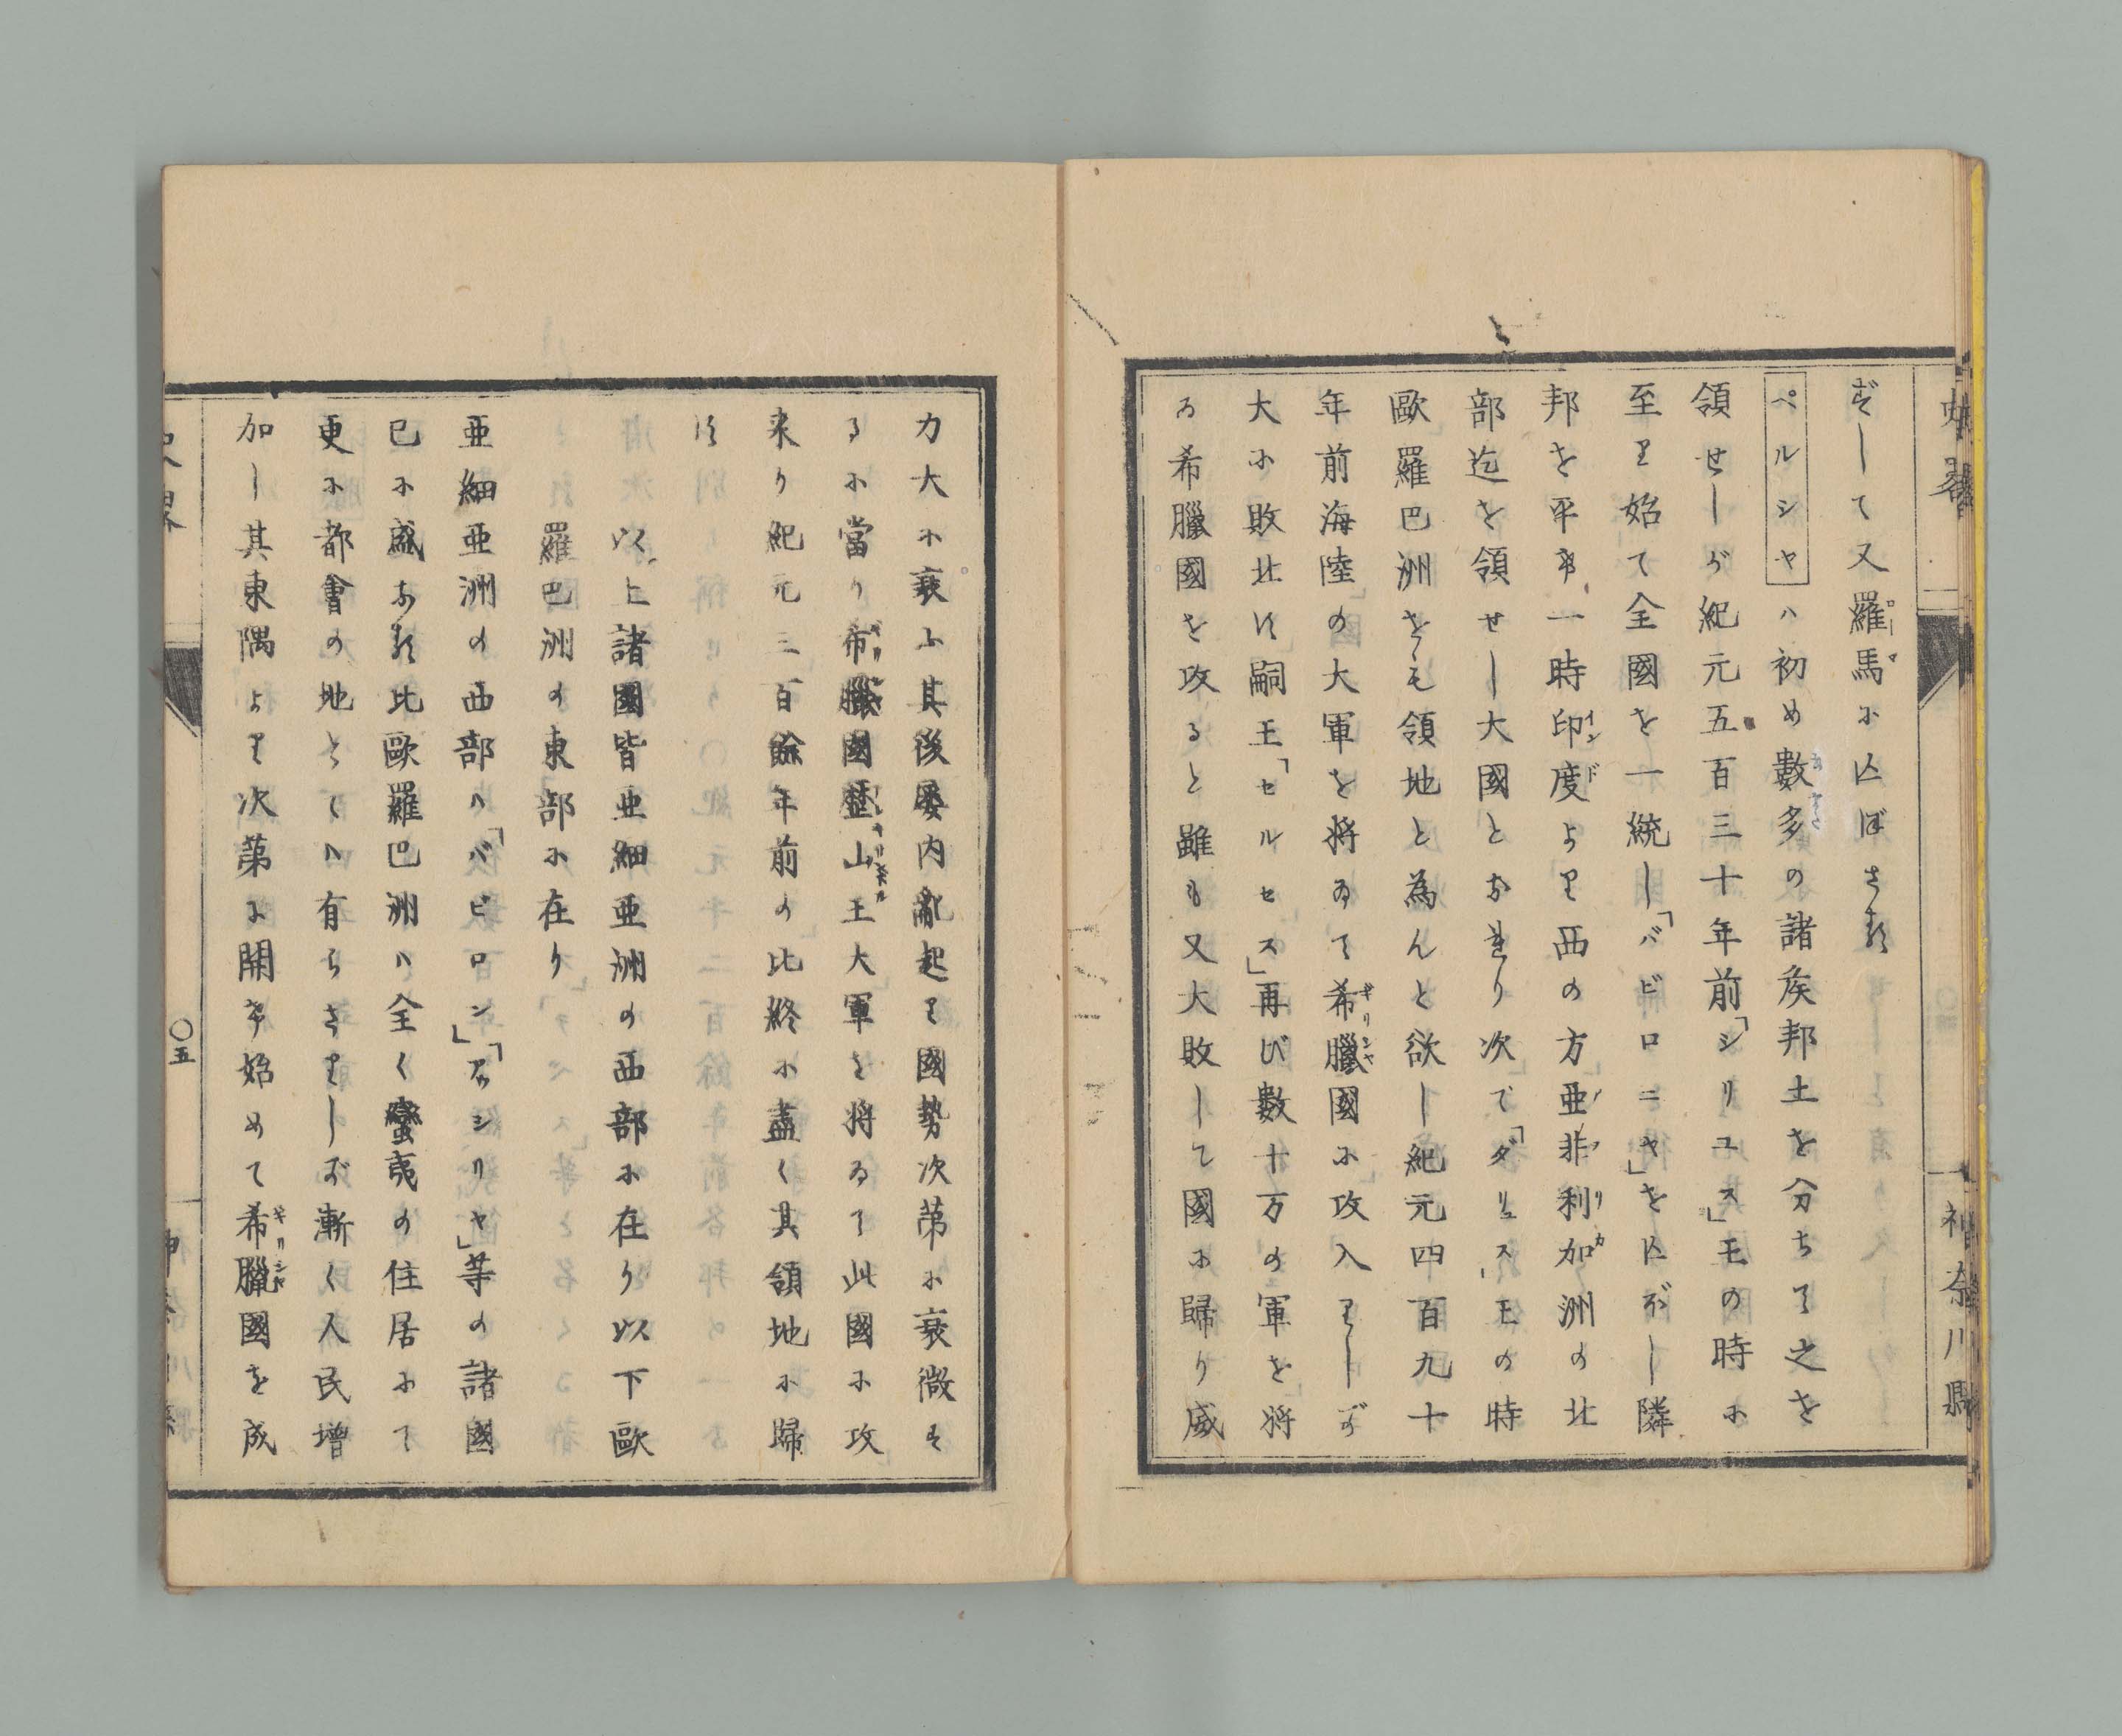 史畧
神奈川縣
ずして又羅馬に亡ぼさる
ペルシヤハ初め數多の諸矦邦土を分ちて之を
領せしが紀元五百三十年前「シリユス」王の時に
至り始て全國を一統し「バビロニヤ」を亡ぼし隣
邦を平げ一時印度より西の方亜非利加洲の北
部迄を領せし大國となれり次で「ダリュス」王の時
歐羅巴洲をも領地と為んと欲し紀元四百九十
年前海陸の大軍を将ゐて希臘國に攻入りしが
大に敗北す嗣王「セルセス」再び數十万の軍を将
ゐ希臘國を攻ると雖も又大敗して國に歸り威
力大に衰ふ其後屡内亂起り國勢次第に衰微す
るに當り希臘國歴山王大軍を将ゐて此國に攻
来り紀元三百餘年前の比終に盡く其領地に歸
す
以上諸國皆亜細亜洲の西部に在り以下歐
羅巴洲の東部に在り
亜細亜洲の西部ハ「バビロン」「アッシリヤ」等の諸國
已に盛なる比歐羅巴洲ハ全く蠻夷の住居にて
更に都會の地とてハ有らざりしが漸く人民増
加し其東隅より次第に開け始めて希臘國を成
史畧
〇五
神奈川縣